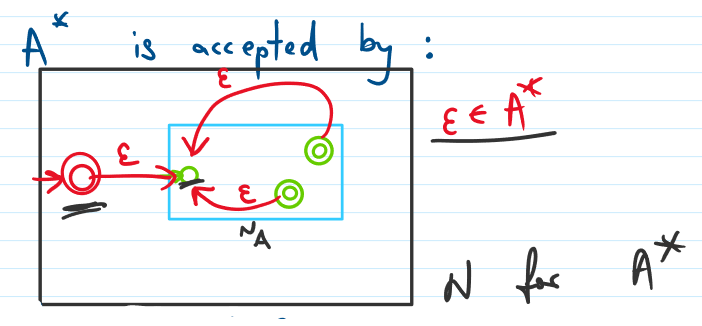 A* is accepted by :
ε
ε ∈ A*
ε
ε
N_A
N for A*